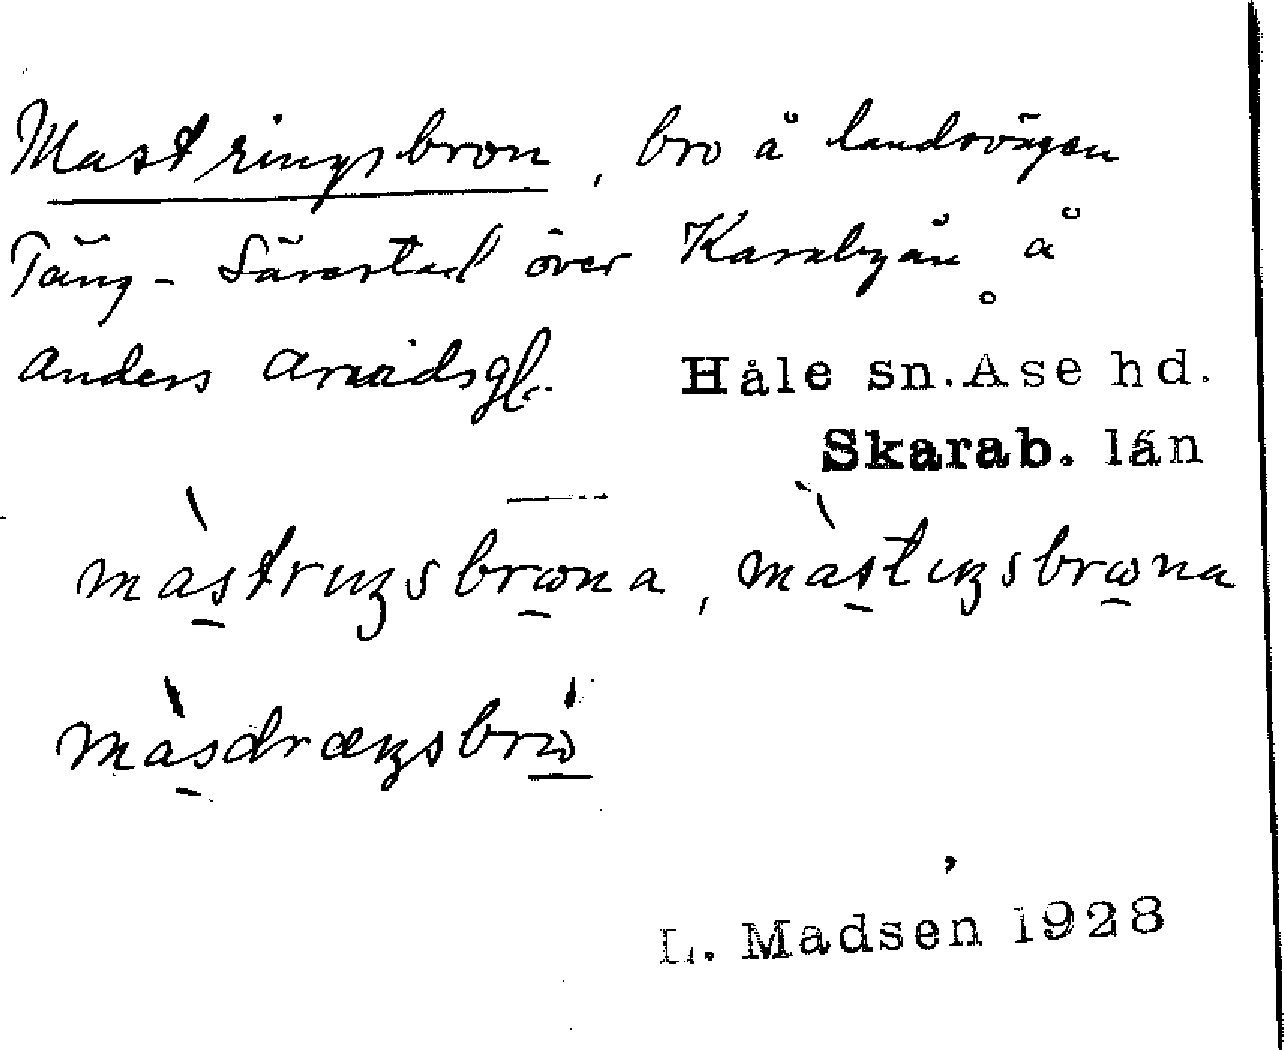 Mastringsbron, bro å landsvägen
Täng - Särestad över Karabyån å
Anders Arvidsgl.
Håle sn. Åse hd.
Skarab. län
màstrıŋsbrωna, màstıŋsbrωna
màsdræŋsbrώ
L. Madsen 1928